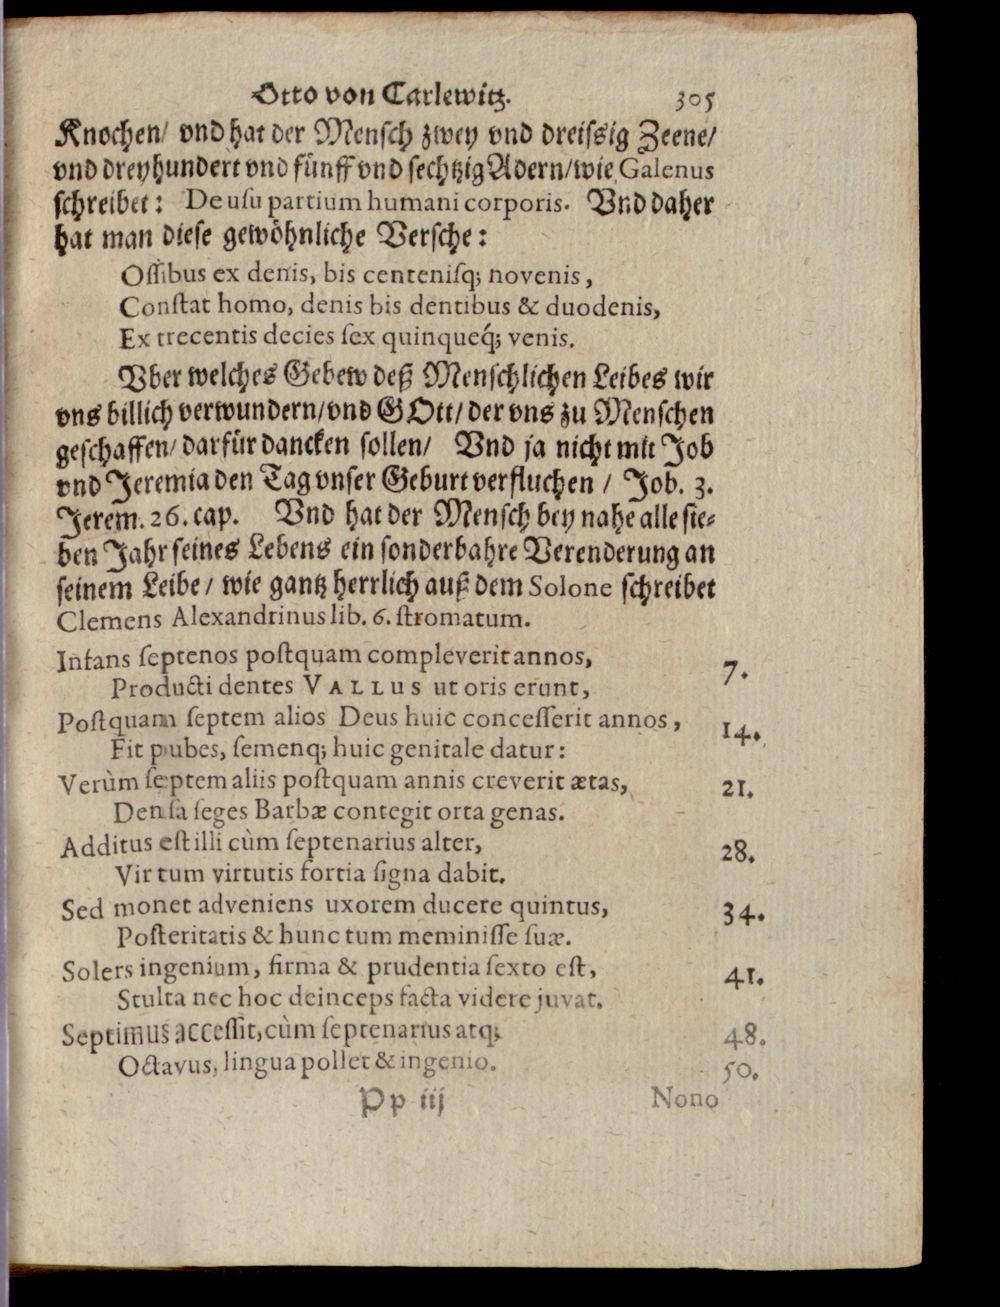 Otto von Carlewitz. 305
Knochen/ vnd hat der Mensch zwey vnd dreissig Zeene/
vnd dreyhundert vnd fünff vnd sechtzig Adern/wie Galenus
schreibet: De usu partium humani corporis. Vnd daher
hat man diese gewöhnliche Versche:
Oſſibus ex denis, bis centeniſq; novenis,
Conſtat homo, denis bis dentibus & duodenis,
Ex trecentis decies ſex quinqueq́; venis.
Vber welches Gebew deß Menschlichen Leibes wir
vns billich verwundern/vnd GOtt/ der vns zu Menschen
geschaffen/ darfür dancken sollen/ Vnd ja nicht mit Job
vnd Jeremia den Tag vnser Geburt verfluchen / Job. 3.
Jerem. 26. cap. Vnd hat der Mensch bey nahe alle sie-
ben Jahr seines Lebens ein sonderbahre Verenderung an
seinem Leibe/ wie gantz herrlich auß dem Solone schreibet
Clemens Alexandrinus lib. 6. ſtromatum.
Infans ſeptenos poſtquam compleverit annos, 7.
Producti dentes VALLUS ut oris erunt,
Poſtquam ſeptem alios Deus huic conceſſerit annos, 14.
Fit pubes, ſemenq; huic genitale datur:
Verùm ſeptem aliis poſtquam annis creverit ætas, 21.
Denſa ſeges Barbæ contegit orta genas.
Additus eſt illi cùm ſeptenarius alter, 28.
Vir tum virtutis fortia ſigna dabit.
Sed monet adveniens uxorem ducere quintus, 34.
Poſteritatis & hunc tum meminiſſe ſuæ.
Solers ingenium, firma & prudentia ſexto eſt, 41.
Stulta nec hoc deinceps facta videre juvat.
Septimus acceſſit, cùm ſeptenarius atq; 48.
Octavus, lingua pollet & ingenio. 50.
Pp iij Nono